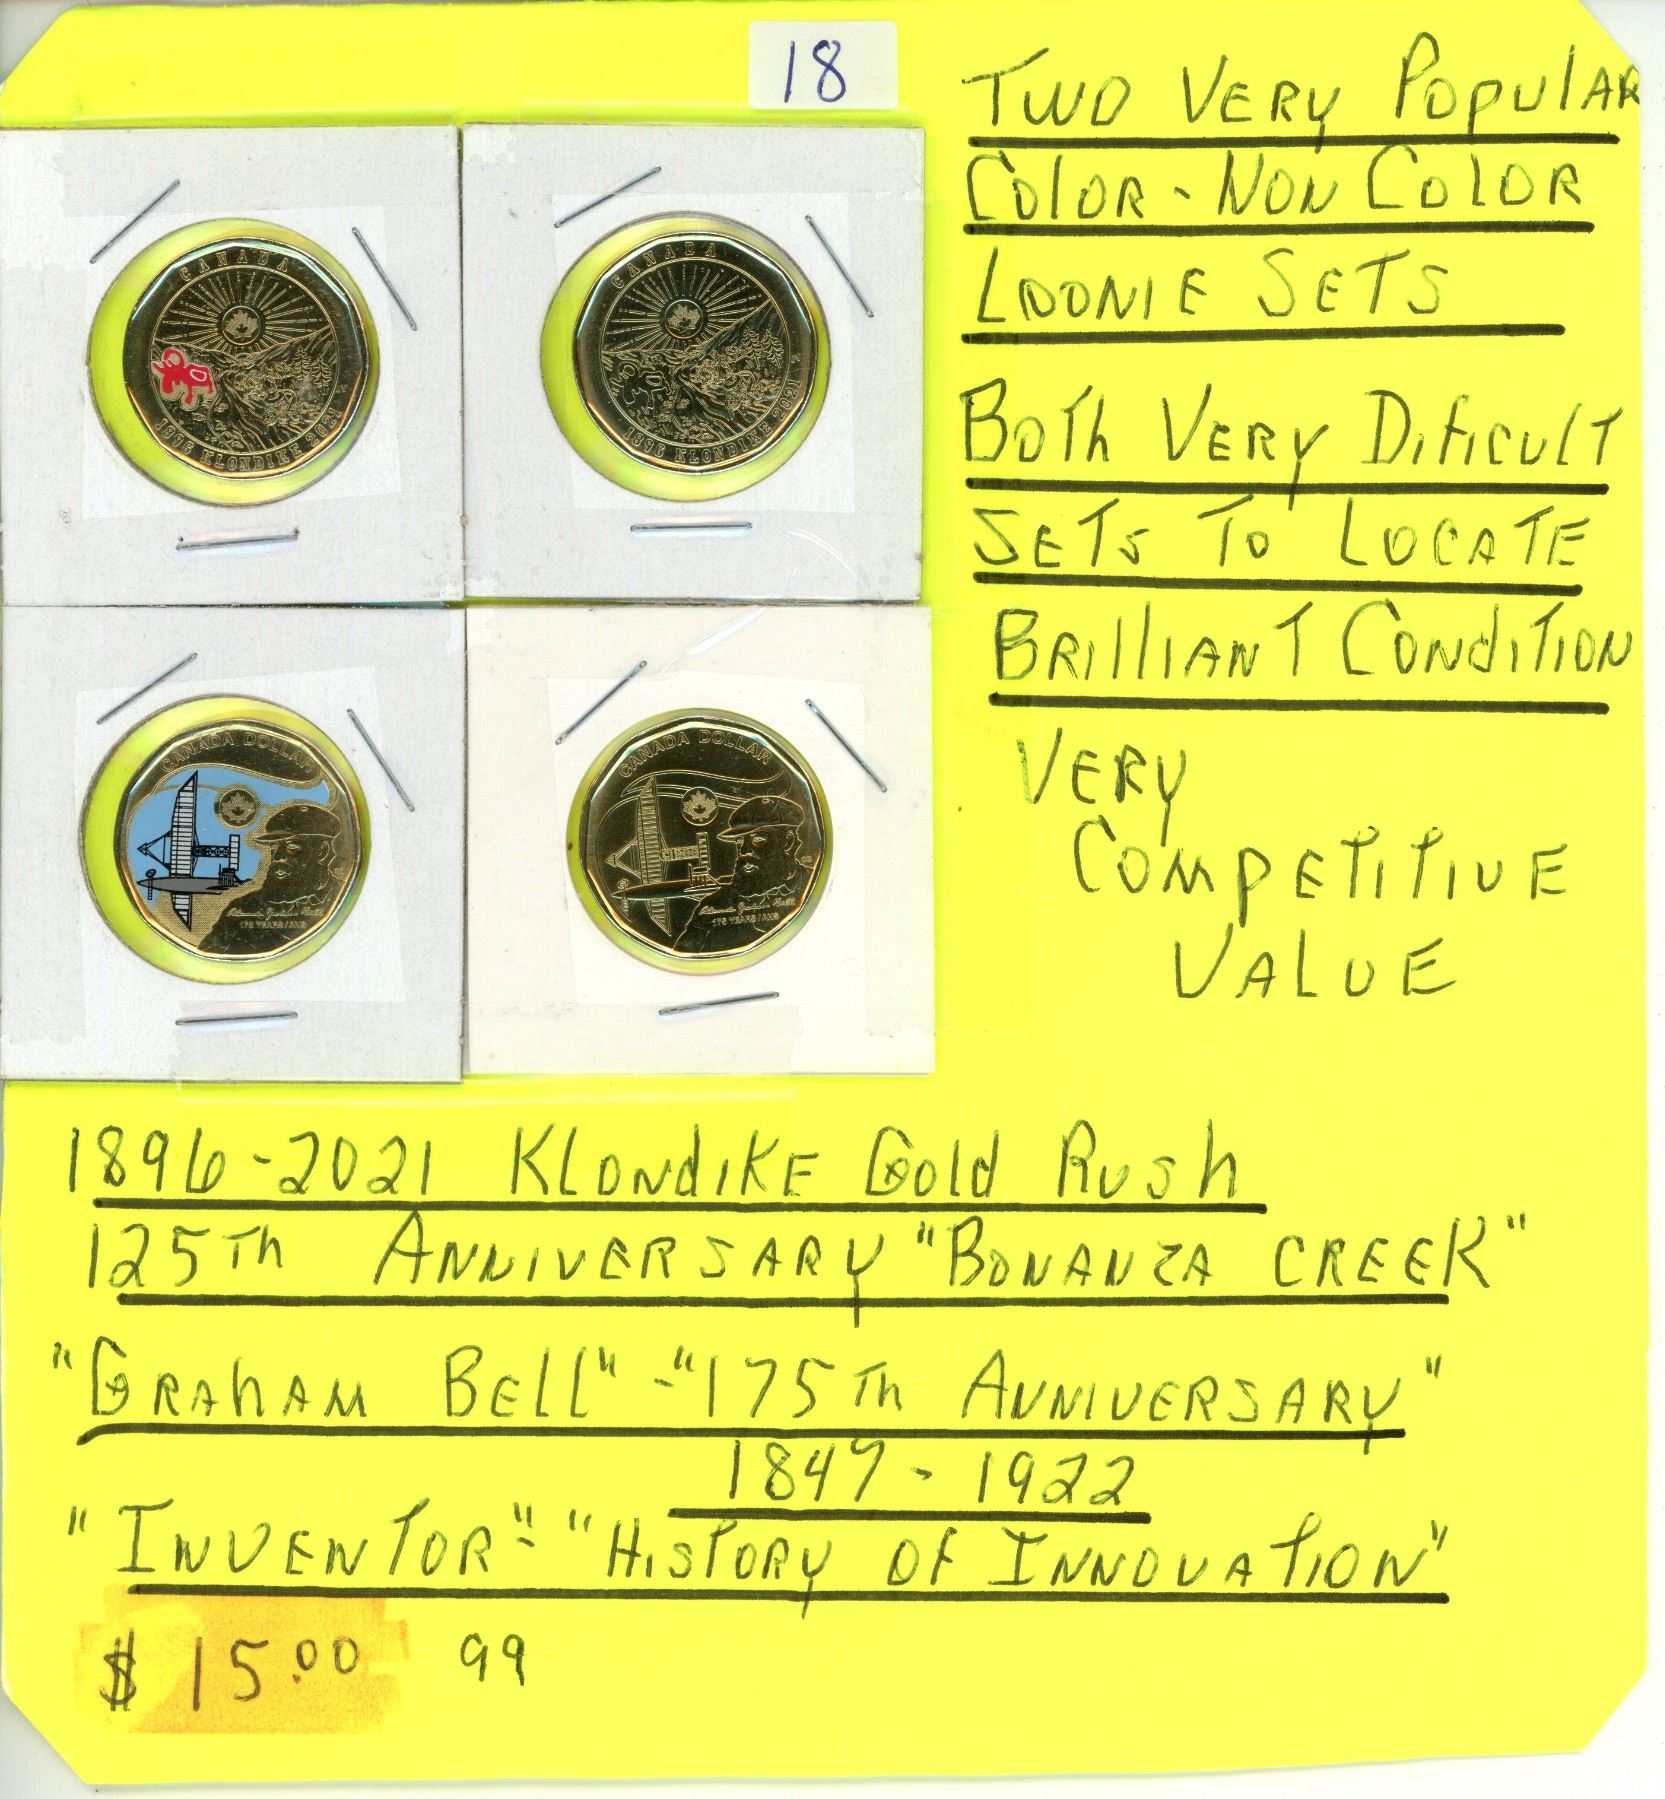 18
Two Very Popular
Color - Non Color
Loonie Sets
Both Very Dificult
Sets To Locate
Brilliant Condition
Very
Competitive
Value
CANADA
1896 KLONDIKE 2021
CANADA
1896 KLONDIKE 2021
CANADA DOLLAR
Alexander Graham Bell
175 YEARS/ANS
CANADA DOLLAR
Alexander Graham Bell
175 YEARS/ANS
1896-2021 Klondike Gold Rush
125th Anniversary "Bonanza Creek"
"Graham Bell" - "175th Anniversary"
1847 - 1922
"Inventor" - "History of Innovation"
$15.00 99